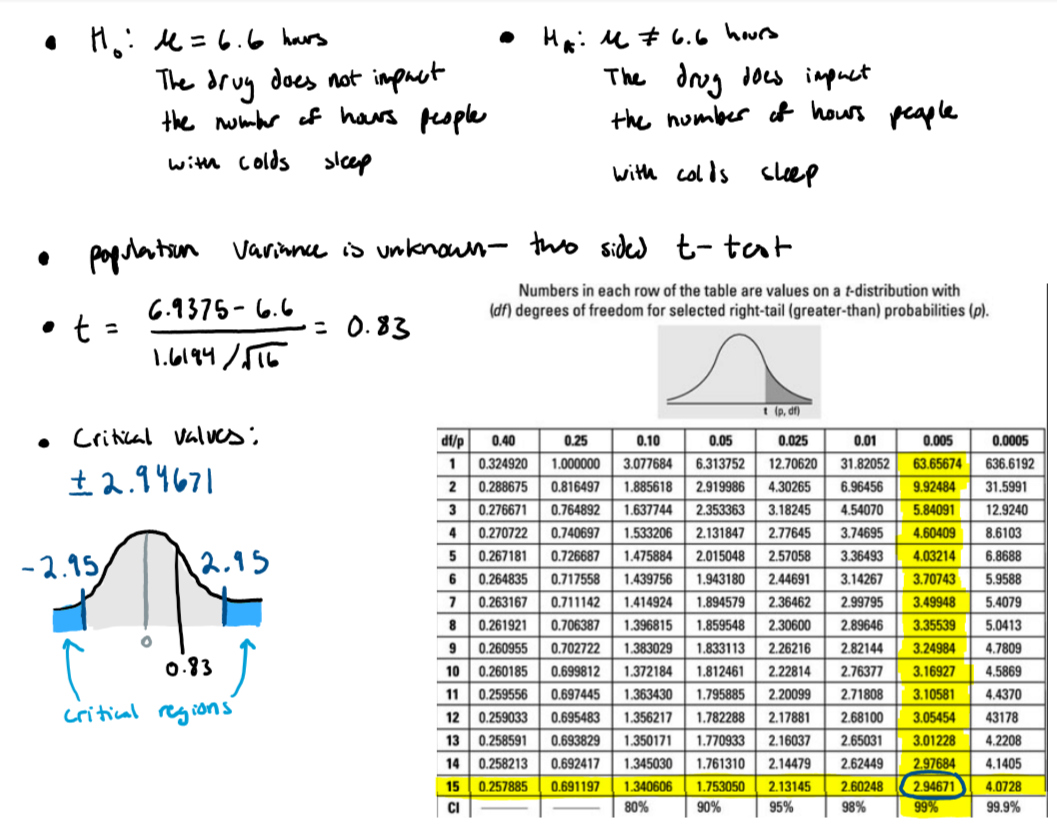 • H₀: μ = 6.6 hours
The drug does not impact
the number of hours people
with colds sleep
• Hₐ: μ ≠ 6.6 hours
The drug does impact
the number of hours people
with colds sleep
• population variance is unknown – two sided t-test
• t = (6.9375 - 6.6) / (1.6194 / √16) = 0.83
• Critical values:
± 2.94671
-2.95 2.95
0
0.83
critical regions
Numbers in each row of the table are values on a t-distribution with
(df) degrees of freedom for selected right-tail (greater-than) probabilities (p).
t (p, df)
df/p 0.40 0.25 0.10 0.05 0.025 0.01 0.005 0.0005
1 0.324920 1.000000 3.077684 6.313752 12.70620 31.82052 63.65674 636.6192
2 0.288675 0.816497 1.885618 2.919986 4.30265 6.96456 9.92484 31.5991
3 0.276671 0.764892 1.637744 2.353363 3.18245 4.54070 5.84091 12.9240
4 0.270722 0.740697 1.533206 2.131847 2.77645 3.74695 4.60409 8.6103
5 0.267181 0.726687 1.475884 2.015048 2.57058 3.36493 4.03214 6.8688
6 0.264835 0.717558 1.439756 1.943180 2.44691 3.14267 3.70743 5.9588
7 0.263167 0.711142 1.414924 1.894579 2.36462 2.99795 3.49948 5.4079
8 0.261921 0.706387 1.396815 1.859548 2.30600 2.89646 3.35539 5.0413
9 0.260955 0.702722 1.383029 1.833113 2.26216 2.82144 3.24984 4.7809
10 0.260185 0.699812 1.372184 1.812461 2.22814 2.76377 3.16927 4.5869
11 0.259556 0.697445 1.363430 1.795885 2.20099 2.71808 3.10581 4.4370
12 0.259033 0.695483 1.356217 1.782288 2.17881 2.68100 3.05454 43178
13 0.258591 0.693829 1.350171 1.770933 2.16037 2.65031 3.01228 4.2208
14 0.258213 0.692417 1.345030 1.761310 2.14479 2.62449 2.97684 4.1405
15 0.257885 0.691197 1.340606 1.753050 2.13145 2.60248 2.94671 4.0728
CI 80% 90% 95% 98% 99% 99.9%